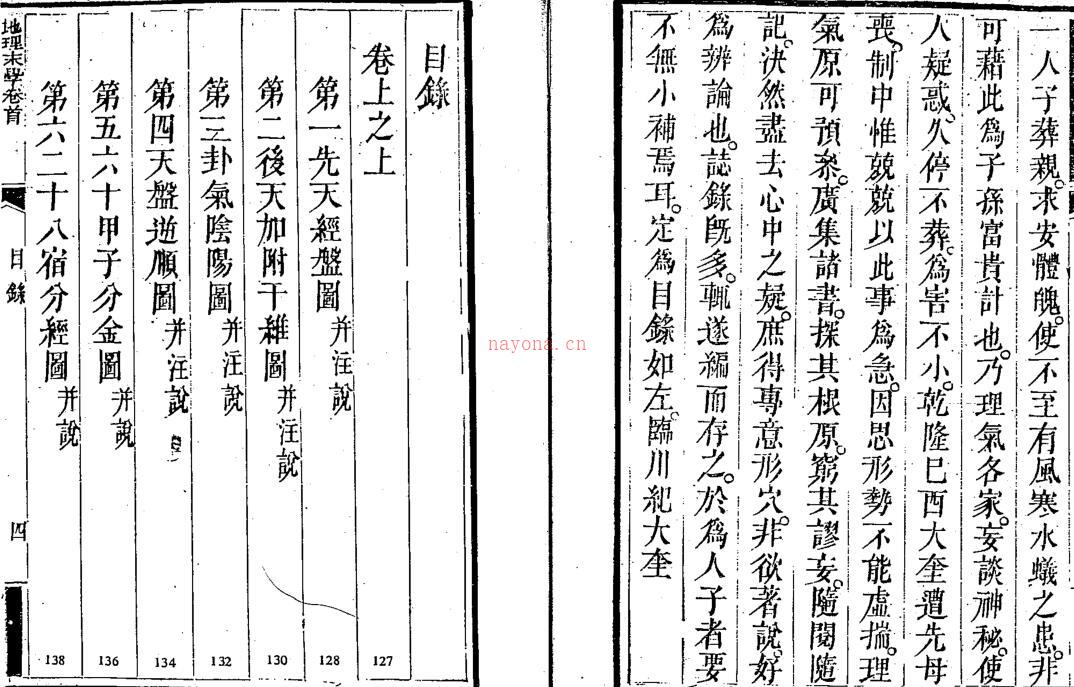 一人子葬親。求安體魄。使不至有風寒水蟻之患。非
可藉此爲子孫富貴計也。乃理氣各家。妄談神秘。使
人疑惑。久停不葬。爲害不小。乾隆己酉大奎遭先母
喪。制中惟兢兢以此事爲急。因思形勢不能虛揣。理
氣原可預桼。廣集諸書。探其根原。窮其謬妄。隨閱隨
記。決然盡去心中之疑。庶得專意形穴。非欲著說。好
爲辨論也。誌錄旣多。輒遂編而存之。於爲人子者要
不無小補焉耳。定爲目錄如左。臨川紀大奎
目錄
卷上之上 127
第一先天經盤圖 并注說 128
第二後天加附干維圖 并注說 130
第三卦氣陰陽圖 并注說 132
第四天盤逆順圖 并注說 134
第五六十甲子分金圖 并說 136
第六二十八宿分經圖 并說 138
地理末學卷首 目錄 四
nayona.cn